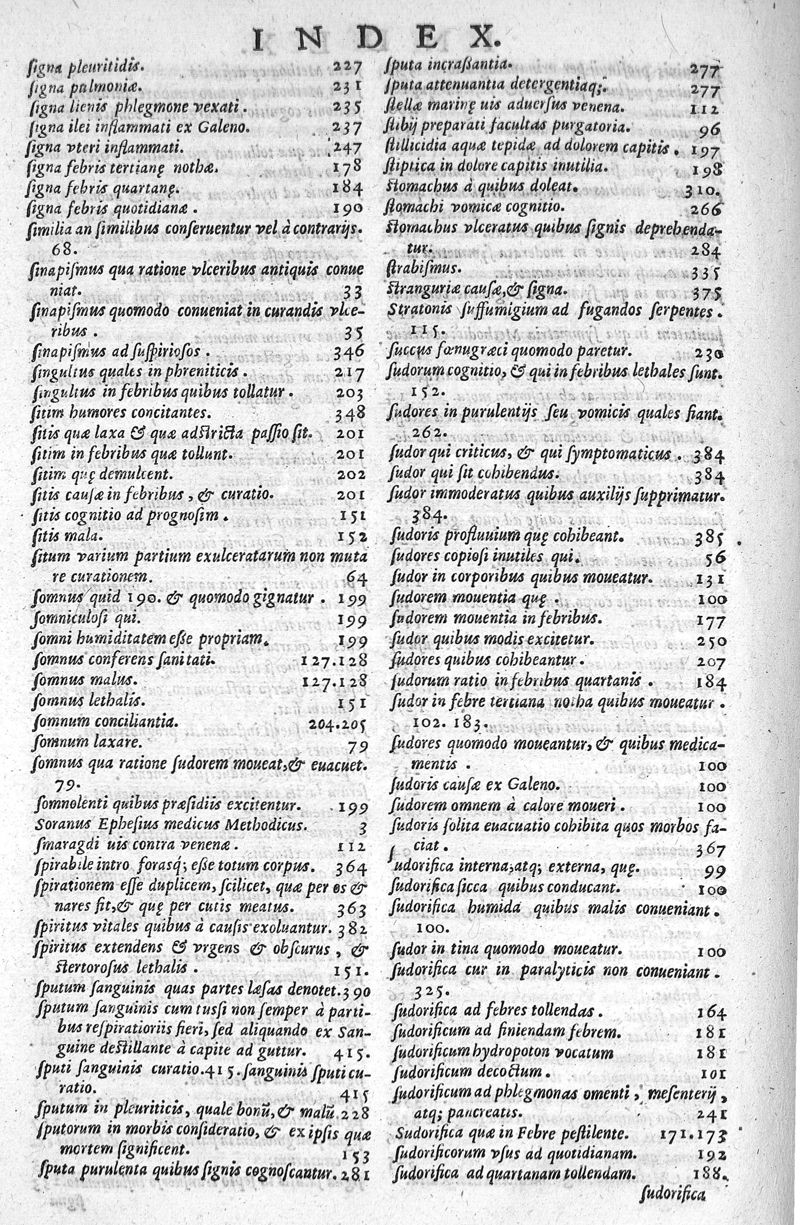 INDEX.
ſigna pleuritidis. 227
ſigna pulmoniæ. 231
ſigna lienis phlegmone vexati. 235
ſigna ilei inflammati ex Galeno. 237
ſigna vteri inflammati. 247
ſigna febris tertianę nothæ. 178
ſigna febris quartanę. 184
ſigna febris quotidianæ. 190
ſimilia an ſimilibus conſeruentur vel à contrarijs.
68.
ſinapiſmus qua ratione vlceribus antiquis conue
niat. 33
ſinapiſmus quomodo conueniat in curandis vlce-
ribus. 35
ſinapiſmus ad ſuſpirioſos. 346
ſingultus quales in phreniticis. 217
ſingultus in febribus quibus tollatur. 203
ſitim humores concitantes. 348
ſitis quæ laxa & quæ adſtricta paſſio ſit. 201
ſitim in febribus quæ tollunt. 201
ſitim quę demulcent. 202
ſitis cauſæ in febribus, & curatio. 201
ſitis cognitio ad prognoſim. 151
ſitis mala. 152
ſitum varium partium exulceratarum non muta
re curationem. 64
ſomnus quid 190. & quomodo gignatur. 199
ſomniculoſi qui. 199
ſomni humiditatem eſſe propriam. 199
ſomnus conferens ſanitati. 127.128
ſomnus malus. 127.128
ſomnus lethalis. 151
ſomnum conciliantia. 204.205
ſomnum laxare. 79
ſomnus qua ratione ſudorem moueat, & euacuet.
79.
ſomnolenti quibus præſidiis excitentur. 199
Soranus Epheſius medicus Methodicus. 3
ſmaragdi uis contra venenæ. 112
ſpirabile intro foraſq; eſſe totum corpus. 364
ſpirationem eſſe duplicem, ſcilicet, quæ per os &
nares fit, & quę per cutis meatus. 363
ſpiritus vitales quibus à cauſis exoluantur. 382
ſpiritus extendens & vrgens & obſcurus, &
ſtertoroſus lethalis. 151.
ſputum ſanguinis quas partes læſas denotet. 390
ſputum ſanguinis cum tuſſi non ſemper à parti-
bus reſpiratoriis fieri, ſed aliquando ex San-
guine deſtillante à capite ad guttur. 415.
ſputi ſanguinis curatio. 415. ſanguinis ſputi cu-
ratio. 415
ſputum in pleuriticis, quale bonũ, & malũ 228
ſputorum in morbis conſideratio, & ex ipſis quæ
mortem ſignificent. 153
ſputa purulenta quibus ſignis cognoſcantur. 281
ſputa incraſſantia. 277
ſputa attenuantia detergentiaq;. 277
ſtellæ marinę uis aduerſus venena. 112
ſtibij preparati facultas purgatoria. 96
ſtillicidia aquæ tepidæ ad dolorem capitis. 197
ſtiptica in dolore capitis inutilia. 198
Stomachus à quibus doleat. 310.
ſtomachi vomicæ cognitio. 266
Stomachus vlceratus quibus ſignis deprehenda-
tur. 284
ſtrabiſmus. 335
Stranguriæ cauſæ, & ſigna. 375
Stratonis ſuffumigium ad fugandos ſerpentes.
115.
ſuccus fœnugræci quomodo paretur. 230
ſudorum cognitio, & qui in febribus lethales ſunt.
152.
ſudores in purulentijs ſeu vomicis quales fiant.
262.
ſudor qui criticus, & qui ſymptomaticus. 384
ſudor qui ſit cohibendus. 384
ſudor immoderatus quibus auxilijs ſupprimatur.
384.
ſudoris profluuium quę cohibeant. 385.
ſudores copioſi inutiles qui. 56
ſudor in corporibus quibus moueatur. 131
ſudorem mouentia quę. 100
ſudorem mouentia in febribus. 177
ſudor quibus modis excitetur. 250
ſudores quibus cohibeantur. 207
ſudorum ratio in febribus quartanis. 184
ſudor in febre tertiana notha quibus moueatur.
102. 183.
ſudores quomodo moueantur, & quibus medica-
mentis. 100
ſudoris cauſæ ex Galeno. 100
ſudorem omnem à calore moueri. 100
ſudoris ſolita euacuatio cohibita quos morbos fa-
ciat. 367
ſudorifica interna, atq; externa, quę. 99
ſudorifica ſicca quibus conducant. 100
ſudorifica humida quibus malis conueniant.
100.
ſudor in tina quomodo moueatur. 100
ſudorifica cur in paralyticis non conueniant.
325.
ſudorifica ad febres tollendas. 164
ſudorificum ad finiendam febrem. 181
ſudorificum hydropoton vocatum 181
ſudorificum decoctum. 101
ſudorificum ad phlegmonas omenti, meſenterij,
atq; pancreatis. 241
Sudorifica quæ in Febre peſtilente. 171.173
ſudorificorum vſus ad quotidianam. 192
ſudorifica ad quartanam tollendam. 188.
ſudorifica